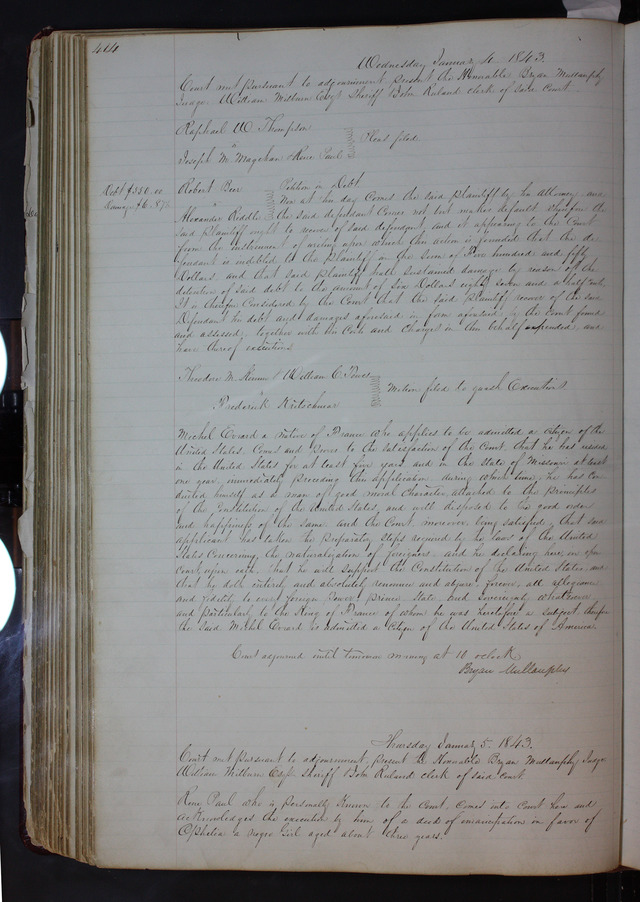 444
Wednesday January 4 1843.
Court met pursuant to adjournment, present the Honorable Bryan Mullanphy
Judge. William Milburn Esqr Sheriff & John Ruland clerk of said Court
Raphael W. Thompson
" Pleas filed
Joseph M Magehan & Rene Paul
Debt $550.00
Damages $6.87½
Robert Beer Petition in Debt
" Now at this day Comes the said plaintiff by his attorney and
Alexander Riddle the said defendant Comes not but makes default Wherefore the
said plaintiff ought to recover of said defendant and it appearing to the Court
from the instrument of writing upon which this action is founded that the de-
fendant is indebted to the plaintiff in the Sum of Five hundred and fifty
Dollars and that said plaintiff hath Sustained damage by reason of the
detention of said debt to the amount of Six Dollars eighty seven and a half cents
It is therefore Considered by the Court that the said plaintiff recover of the said
Defendant his debt and damages aforesaid in form aforesaid by the Court found
and assessed, together with his Costs and Charges in this behalf expended and
have thereof execution
Theodore M. William C. Power
" Motion filed to quash Execution
Frederick Kretschmar
Michel Evrard a Native of France who applies to be admitted a Citizen of the
United States. Comes and proves to the Satisfaction of the Court. that he has resided
in the United States for at least five years and in the State of Missouri at least
one year, immediately preceding this application during which time he has Con-
ducted himself as a man of good moral Character, attached to the principles
of the Constitution of the United States, and well disposed to the good order
and happiness of the Same. And the Court moreover being satisfied, that said
applicant has taken the preparatory Steps required by the laws of the United
States Concerning the naturalization of foreigners, and he declaring here in open
Court, upon oath, that he will Support the Constitution of the United States and
that he doth entirely and absolutely renounce and abjure forever, all allegiance
and fidelity to every foreign Power, prince State, and Sovereignty whatsoever
and particularly to the King of France of whom he was heretofore a Subject therefore
the Said Michel Evrard is admitted a Citizen of the United States of America.
Court adjourned until tomorrow morning at 10 oclock
Bryan Mullanphy
Thursday January 5. 1843.
Court met pursuant to adjournment, present the Honorable Bryan Mullanphy Judge
William Milburn Esqr. Sheriff & John Ruland clerk of said Court
Rene Paul who is personally known to the Court, Comes into Court here and
acknowledges the execution by him of a deed of emancipation in favor of
Ophelia a negro Girl aged about three years.